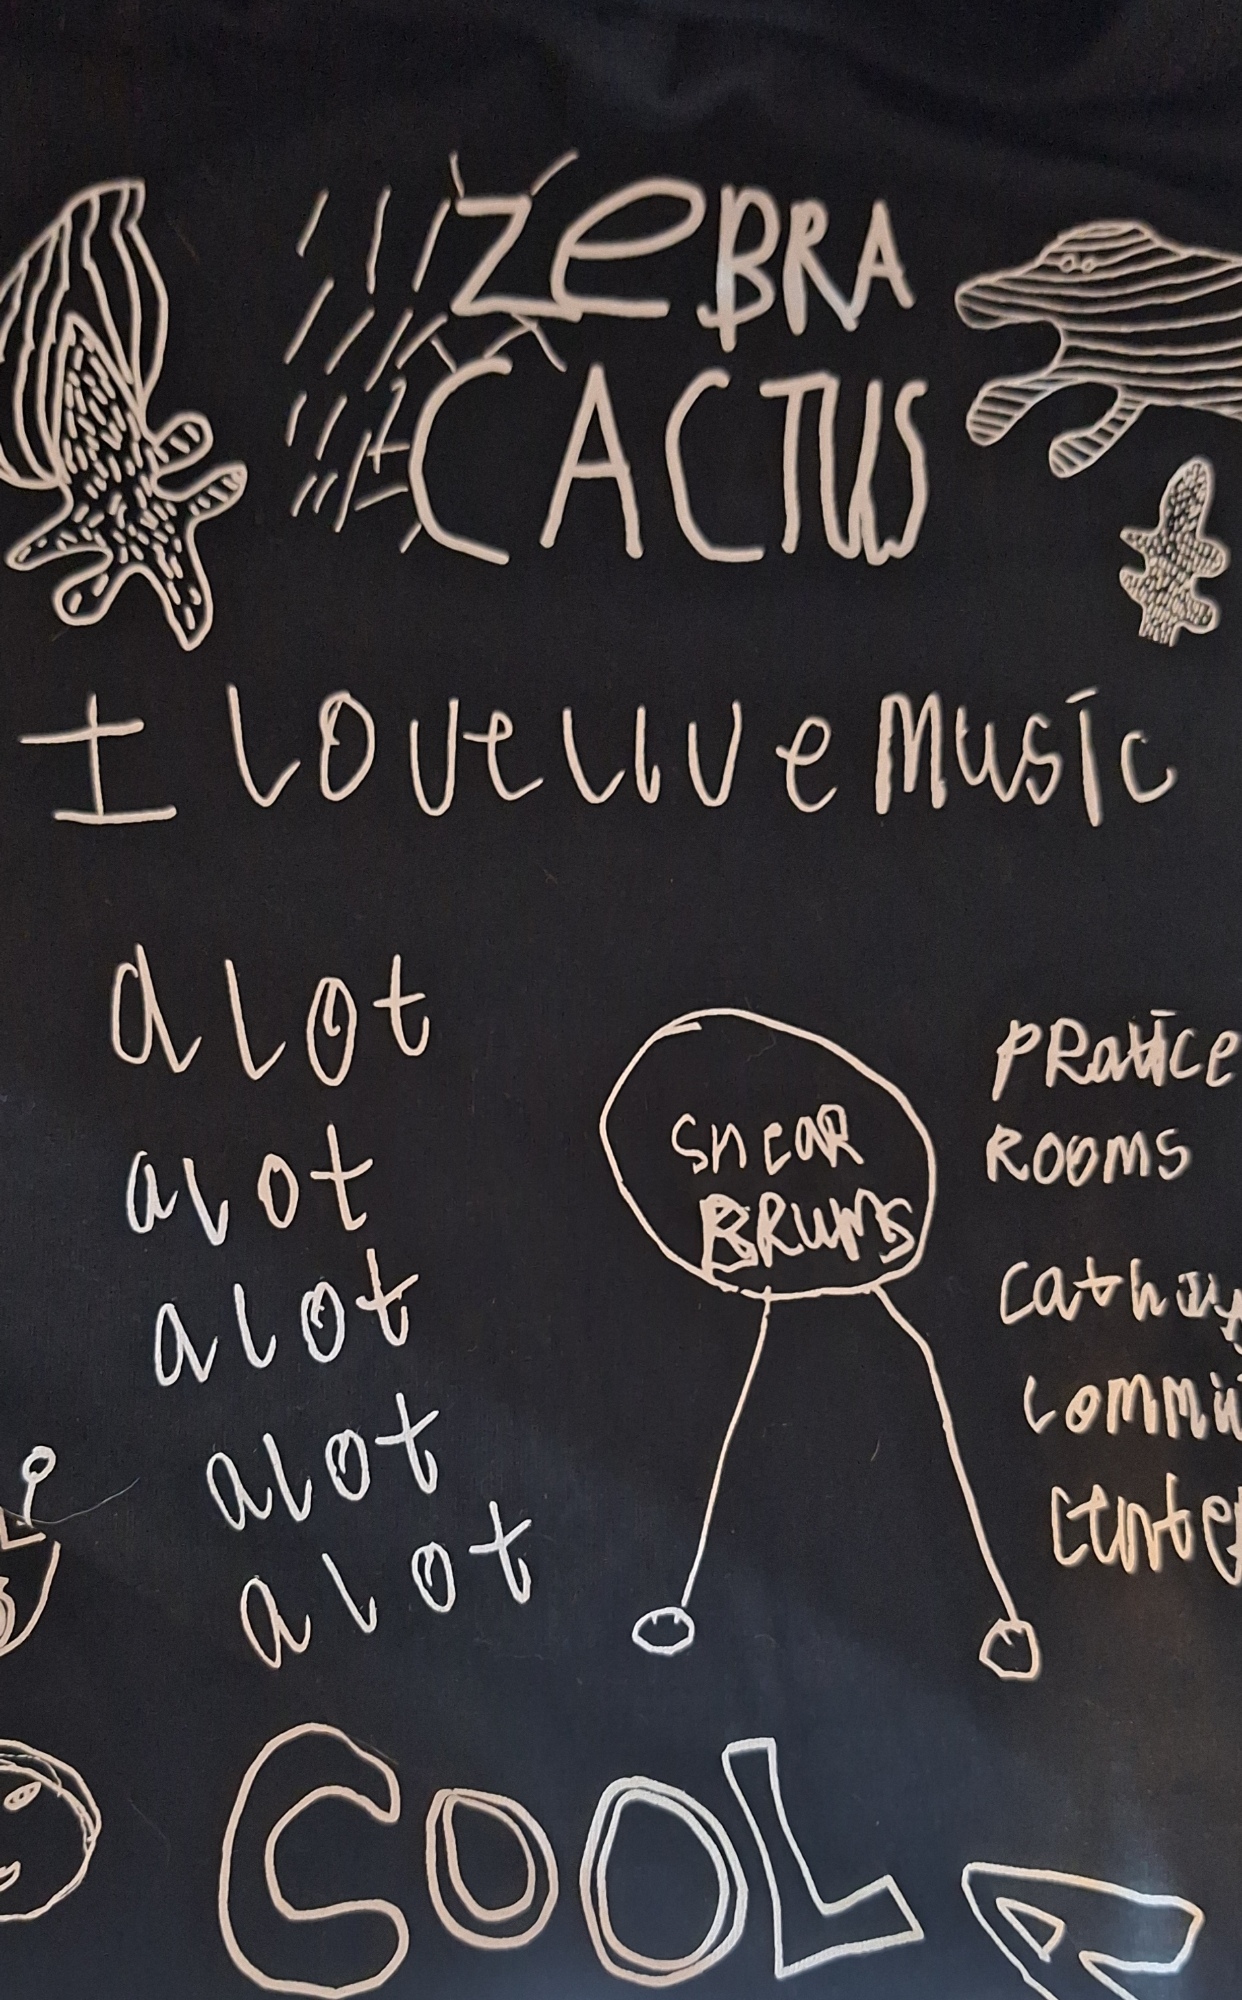 ZeBRA
CACTUS
I Love live music
alot
alot
alot
alot
alot
SneaR
BRUMS
PRatice
ROOMS
center
COOL